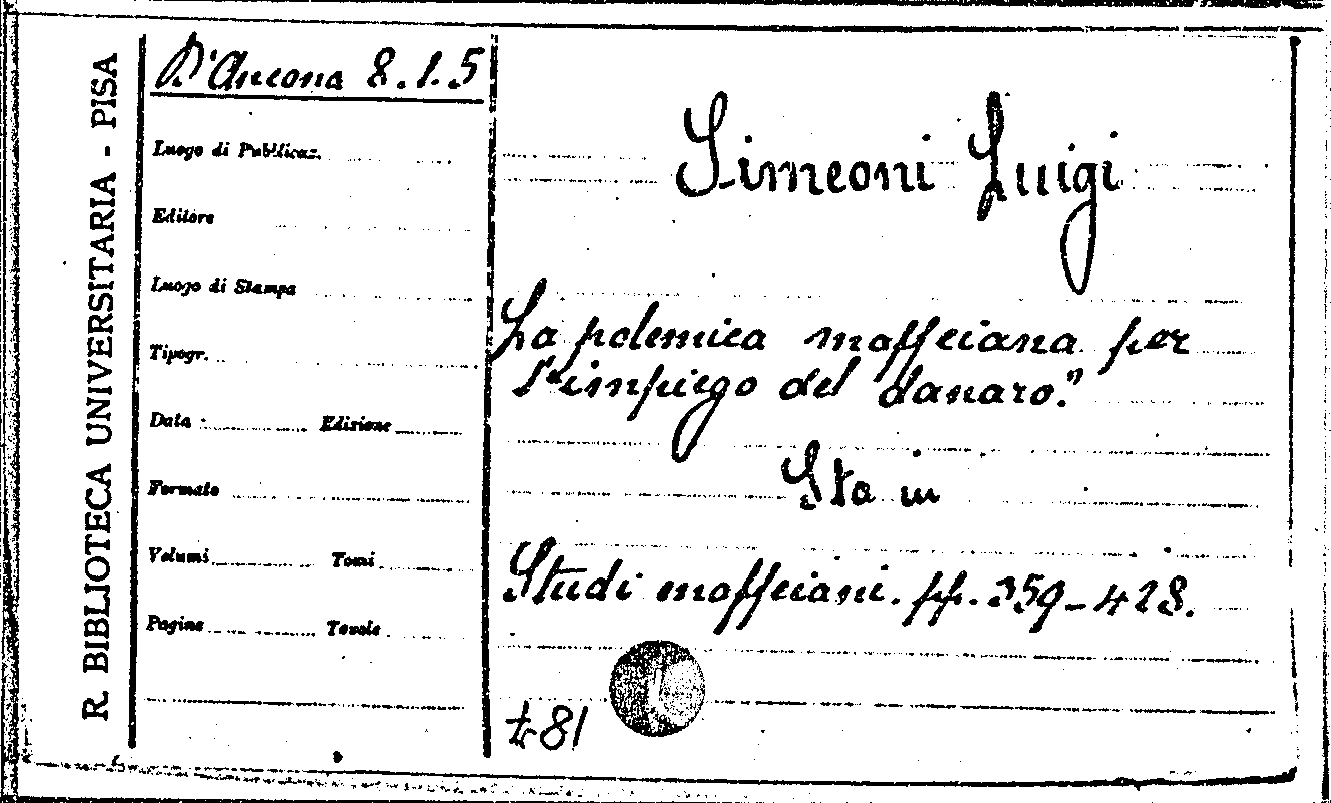 R. BIBLIOTECA UNIVERSITARIA - PISA
D'Ancona 8.1.5
Luogo di Pubblicaz.
Editore
Luogo di Stampa
Tipogr.
Data Edizione
Formato
Volumi Tomi
Pagine Tavole
Simeoni Luigi
La polemica maffeiana per
l'"impiego del danaro."
Sta in
Studi maffeiani. pp. 359-428.
81